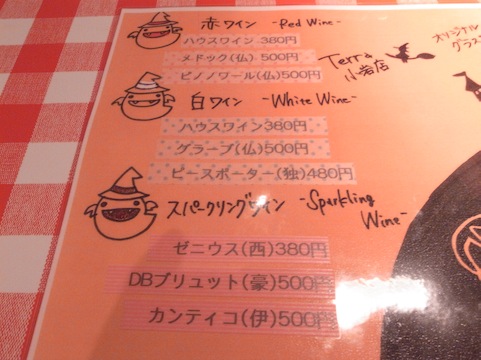 赤ワイン -Red Wine-
ハウスワイン 380円
メドック(仏) 500円
ピノノワール(仏)500円
Terra
小岩店
オリジナル
グラス
白ワイン -White Wine-
ハウスワイン380円
グラーブ(仏)500円
ピースポーター(独)480円
スパークリングワイン -Sparkling
Wine-
ゼニウス(西)380円
DBブリュット(豪)500円
カンティコ(伊)500円